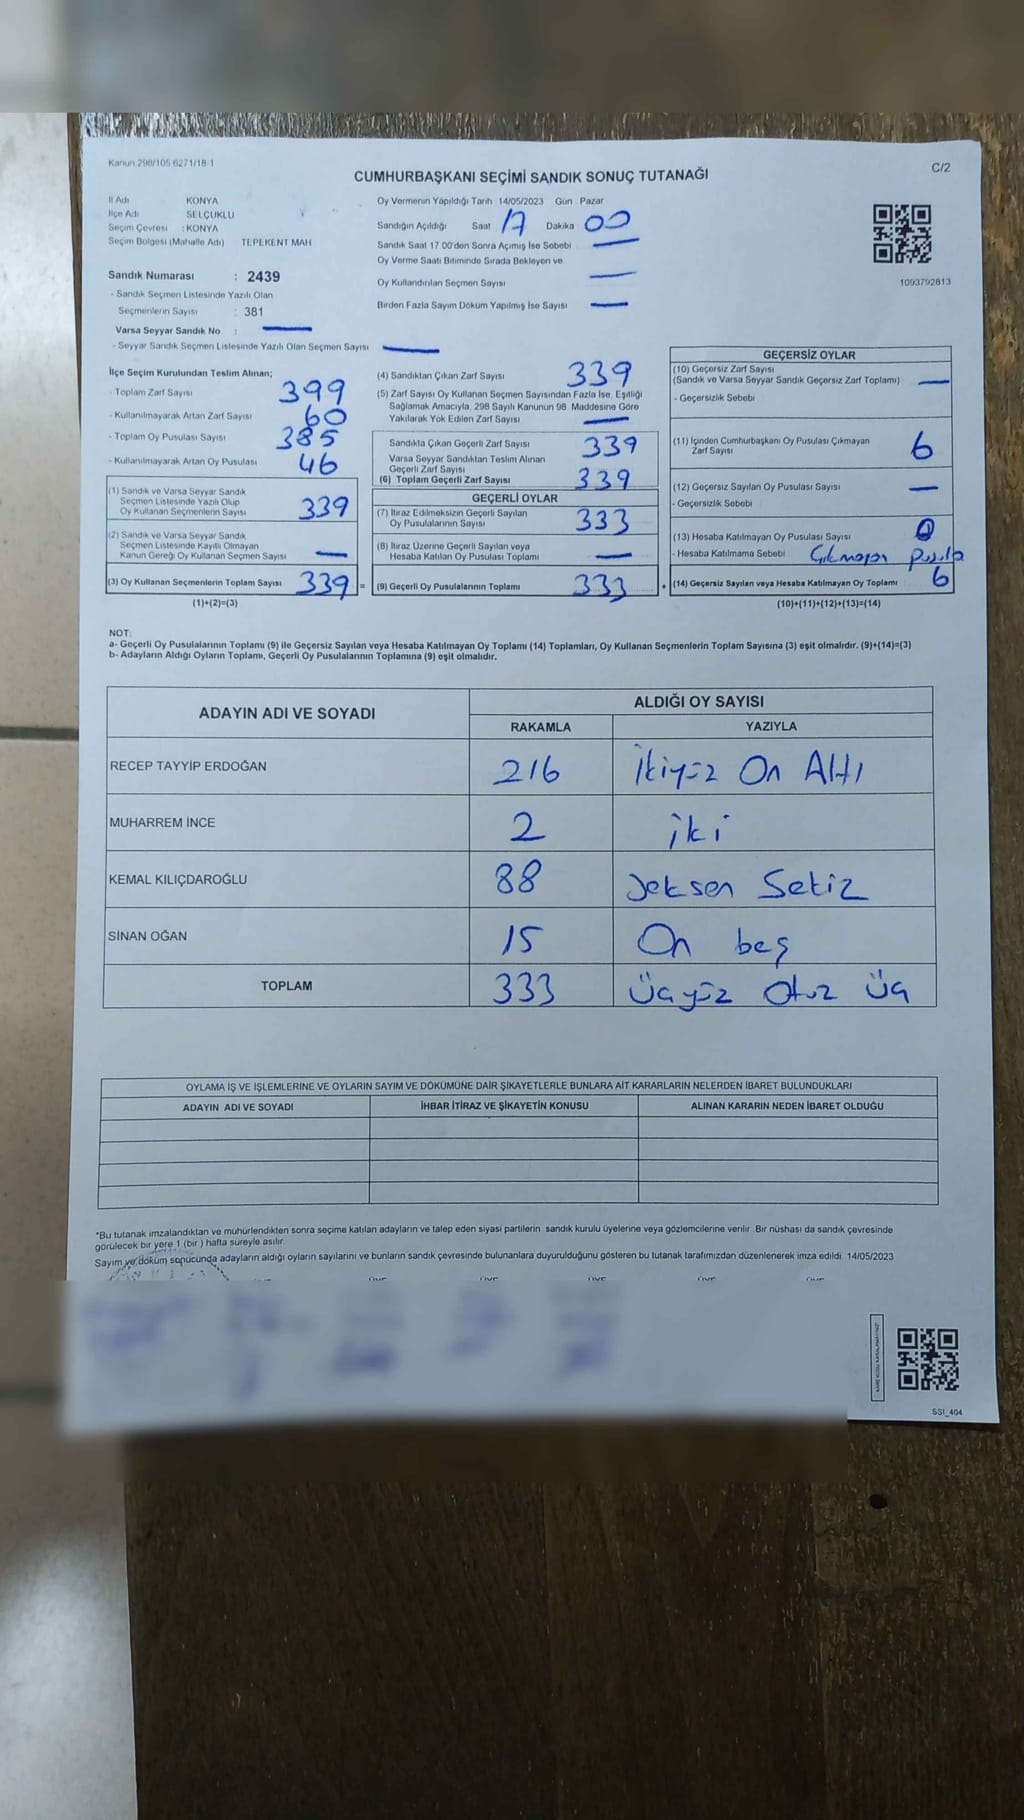 Kanun 298/105 6271/18-1
C/2
CUMHURBAŞKANI SEÇİMİ SANDIK SONUÇ TUTANAĞI
İl Adı KONYA
İlçe Adı SELÇUKLU
Seçim Çevresi : KONYA
Seçim Bölgesi (Mahalle Adı) TEPEKENT MAH
Sandık Numarası : 2439
- Sandık Seçmen Listesinde Yazılı Olan
Seçmenlerin Sayısı : 381
Varsa Seyyar Sandık No :
- Seyyar Sandık Seçmen Listesinde Yazılı Olan Seçmen Sayısı
Oy Vermenin Yapıldığı Tarih 14/05/2023 Gün : Pazar
Sandığın Açıldığı Saat 17 Dakika 00
Sandık Saat 17 00'den Sonra Açımış İse Sebebi
Oy Verme Saati Bitiminde Sırada Bekleyen ve
Oy Kullandırılan Seçmen Sayısı
Birden Fazla Sayım Döküm Yapılmış İse Sayısı
1093792813
İlçe Seçim Kurulundan Teslim Alınan;
- Toplam Zarf Sayısı 399
- Kullanılmayarak Artan Zarf Sayısı 60
- Toplam Oy Pusulası Sayısı 385
- Kullanılmayarak Artan Oy Pusulası 46
(1) Sandık ve Varsa Seyyar Sandık
Seçmen Listesinde Yazılı Olup
Oy Kullanan Seçmenlerin Sayısı 339
(2) Sandık ve Varsa Seyyar Sandık
Seçmen Listesinde Kayıtlı Olmayan
Kanun Gereği Oy Kullanan Seçmen Sayısı
(3) Oy Kullanan Seçmenlerin Toplam Sayısı 339 =
(1)+(2)=(3)
(4) Sandıktan Çıkan Zarf Sayısı 339
(5) Zarf Sayısı Oy Kullanan Seçmen Sayısından Fazla İse, Eşitliği
Sağlamak Amacıyla, 298 Sayılı Kanunun 98 Maddesine Göre
Yakılarak Yok Edilen Zarf Sayısı
Sandıkta Çıkan Geçerli Zarf Sayısı 339
Varsa Seyyar Sandıktan Teslim Alınan
Geçerli Zarf Sayısı
(6) Toplam Geçerli Zarf Sayısı 339
GEÇERLİ OYLAR
(7) İtiraz Edilmeksizin Geçerli Sayılan
Oy Pusulalarının Sayısı 333
(8) İtiraz Üzerine Geçerli Sayılan veya
Hesaba Katılan Oy Pusulası Toplamı
(9) Geçerli Oy Pusulalarının Toplamı 333 +
GEÇERSİZ OYLAR
(10) Geçersiz Zarf Sayısı
(Sandık ve Varsa Seyyar Sandık Geçersiz Zarf Toplamı)
- Geçersizlik Sebebi
(11) İçinden Cumhurbaşkanı Oy Pusulası Çıkmayan
Zarf Sayısı 6
(12) Geçersiz Sayılan Oy Pusulası Sayısı
- Geçersizlik Sebebi
(13) Hesaba Katılmayan Oy Pusulası Sayısı
- Hesaba Katılmama Sebebi Çıkmayan Pusula
(14) Geçersiz Sayılan veya Hesaba Katılmayan Oy Toplamı 6
(10)+(11)+(12)+(13)=(14)
NOT:
a- Geçerli Oy Pusulalarının Toplamı (9) ile Geçersiz Sayılan veya Hesaba Katılmayan Oy Toplamı (14) Toplamları, Oy Kullanan Seçmenlerin Toplam Sayısına (3) eşit olmalıdır. (9)+(14)=(3)
b- Adayların Aldığı Oyların Toplamı, Geçerli Oy Pusulalarının Toplamına (9) eşit olmalıdır.
ADAYIN ADI VE SOYADI ALDIĞI OY SAYISI
RAKAMLA YAZIYLA
RECEP TAYYİP ERDOĞAN 216 İkiyüz On Altı
MUHARREM İNCE 2 iki
KEMAL KILIÇDAROĞLU 88 Seksen Sekiz
SİNAN OĞAN 15 On beş
TOPLAM 333 Üçyüz Otuz Üç
OYLAMA İŞ VE İŞLEMLERİNE VE OYLARIN SAYIM VE DÖKÜMÜNE DAİR ŞİKAYETLERLE BUNLARA AİT KARARLARIN NELERDEN İBARET BULUNDUKLARI
ADAYIN ADI VE SOYADI İHBAR İTİRAZ VE ŞİKAYETİN KONUSU ALINAN KARARIN NEDEN İBARET OLDUĞU
*Bu tutanak imzalandıktan ve mühürlendikten sonra seçime katılan adayların ve talep eden siyasi partilerin sandık kurulu üyelerine veya gözlemcilerine verilir. Bir nüshası da sandık çevresinde
görülecek bir yere 1 (bir ) hafta süreyle asılır.
Sayım ve döküm sonucunda adayların aldığı oyların sayılarını ve bunların sandık çevresinde bulunanlara duyurulduğunu gösteren bu tutanak tarafımızdan düzenlenerek imza edildi. 14/05/2023
SSI_404